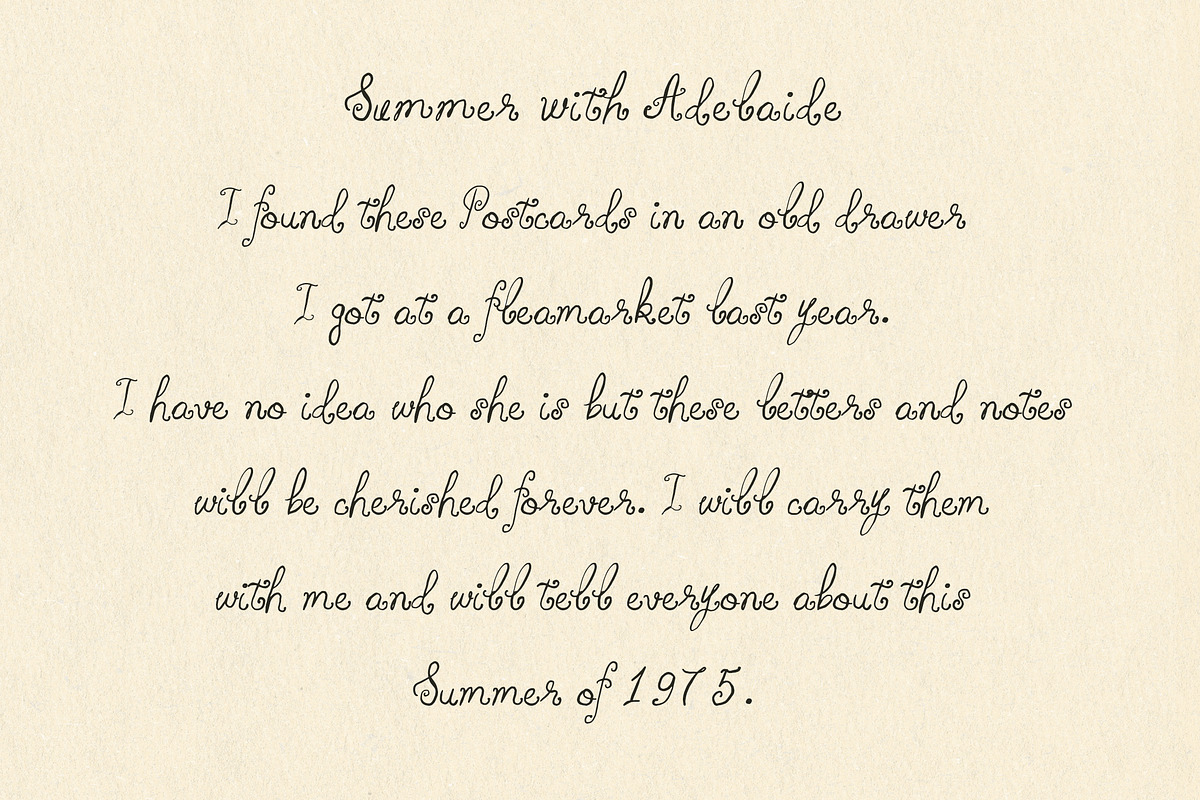 Summer with Adelaide
I found these Postcards in an old drawer
I got at a fleamarket last year.
I have no idea who she is but these letters and notes
will be cherished forever. I will carry them
with me and will tell everyone about this
Summer of 1975.